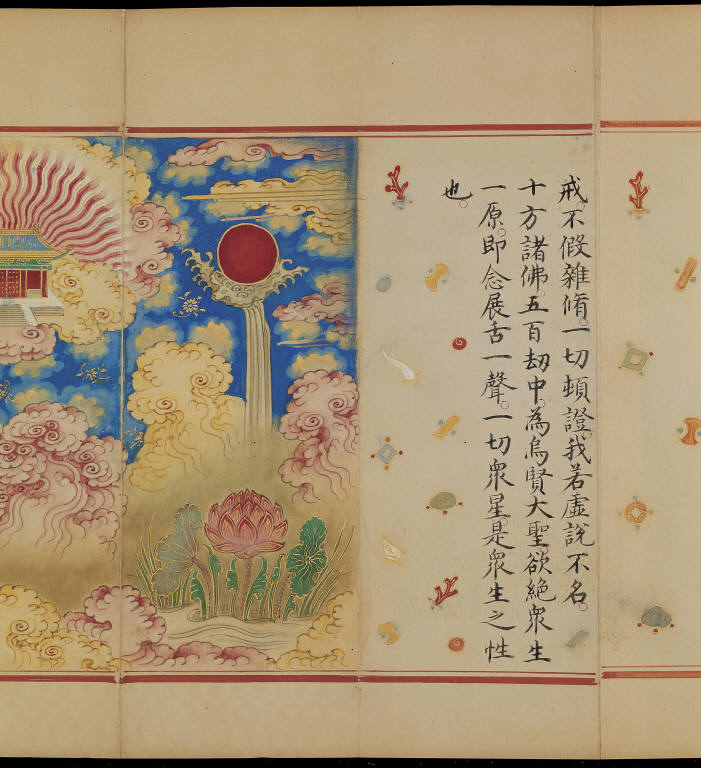 戒不假雜脩一切頓證我若虛說不名
十方諸佛五百刼中為烏賢大聖欲絕衆生
一原即念展舌一聲一切衆星是衆生之性
也